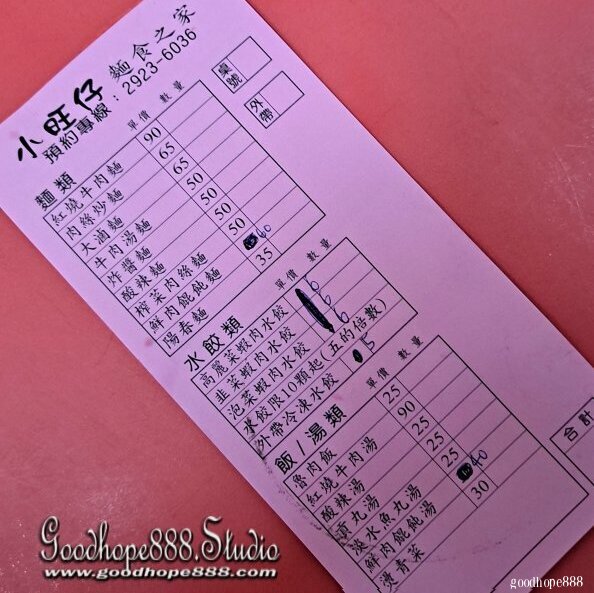 小旺仔 麵食之家
預約專線：2923-6036
桌號
外帶
麵類 單價 數量
紅燒牛肉麵 90
肉絲炒麵 65
大滷麵 65
牛肉湯麵 50
炸醬麵 50
酸辣麵 50
榨菜肉絲麵 50
鮮肉餛飩麵 60
陽春麵 35
水餃類 單價 數量
高麗菜蝦肉水餃 6
韭菜蝦肉水餃 6
泡菜蝦肉水餃 6
水餃限10顆起(五的倍數)
外帶冷凍水餃 5
飯/湯類 單價 數量
魯肉飯 25
紅燒牛肉湯 90
酸辣湯 25
貢丸湯 25
淡水魚丸湯 25
鮮肉餛飩湯 40
燙青菜 30
合計
Goodhope888.Studio
www.goodhope888.com
goodhope888